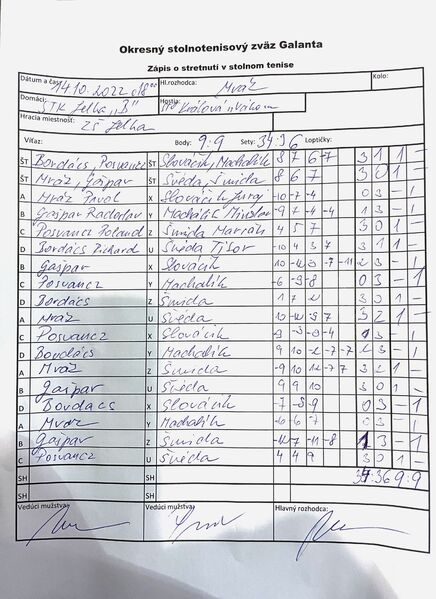 Okresný stolnotenisový zväz Galanta
Zápis o stretnutí v stolnom tenise
Dátum a čas: 14.10.2022 o 18:00 Hl.rozhodca: Mráz Kolo:
Domáci: STK Jelka "B" Hostia: Kráľová n/Váhom
Hracia miestnosť: ZŠ Jelka
Víťaz: Body: 9:9 Sety: 34:36 Loptičky:
ŠT Bordács, Posvancz ŠT Slovácik, Machalik 8 7 6 -7 3 1 1 -
ŠT Mráz, Gašpar ŠT Švéda, Šmida 8 6 7 3 0 1 -
A Mráz Pavol X Slovácik Juraj -10 -7 -4 0 3 - 1
B Gašpar Radoslav Y Machalik Miroslav -9 7 -4 -4 1 3 - 1
C Posvancz Roland Z Šmida Marcel 4 5 7 3 0 1 -
D Bordács Richard U Švéda Tibor -10 4 3 7 3 1 1 -
B Gašpar X Slovácik 2 3 - 1
C Posvancz Y Machalik -6 -9 -8 0 3 - 1
D Bordács Z Šmida 3 0 1 -
A Mráz U Švéda 3 2 1 -
C Posvancz X Slovácik 1 3 - 1
D Bordács Y Machalik 2 3 - 1
A Mráz Z Šmida 3 2 1 -
B Gašpar U Švéda 9 9 10 3 0 1 -
D Bordács X Slovácik -7 -8 -9 0 3 - 1
A Mráz Y Machalik -6 -6 -7 0 3 - 1
B Gašpar Z Šmida 1 3 - 1
C Posvancz U Švéda 4 4 9 3 0 1 -
SH SH 34:36 9:9
SH SH
Vedúci mužstva: Vedúci mužstva: Hlavný rozhodca: